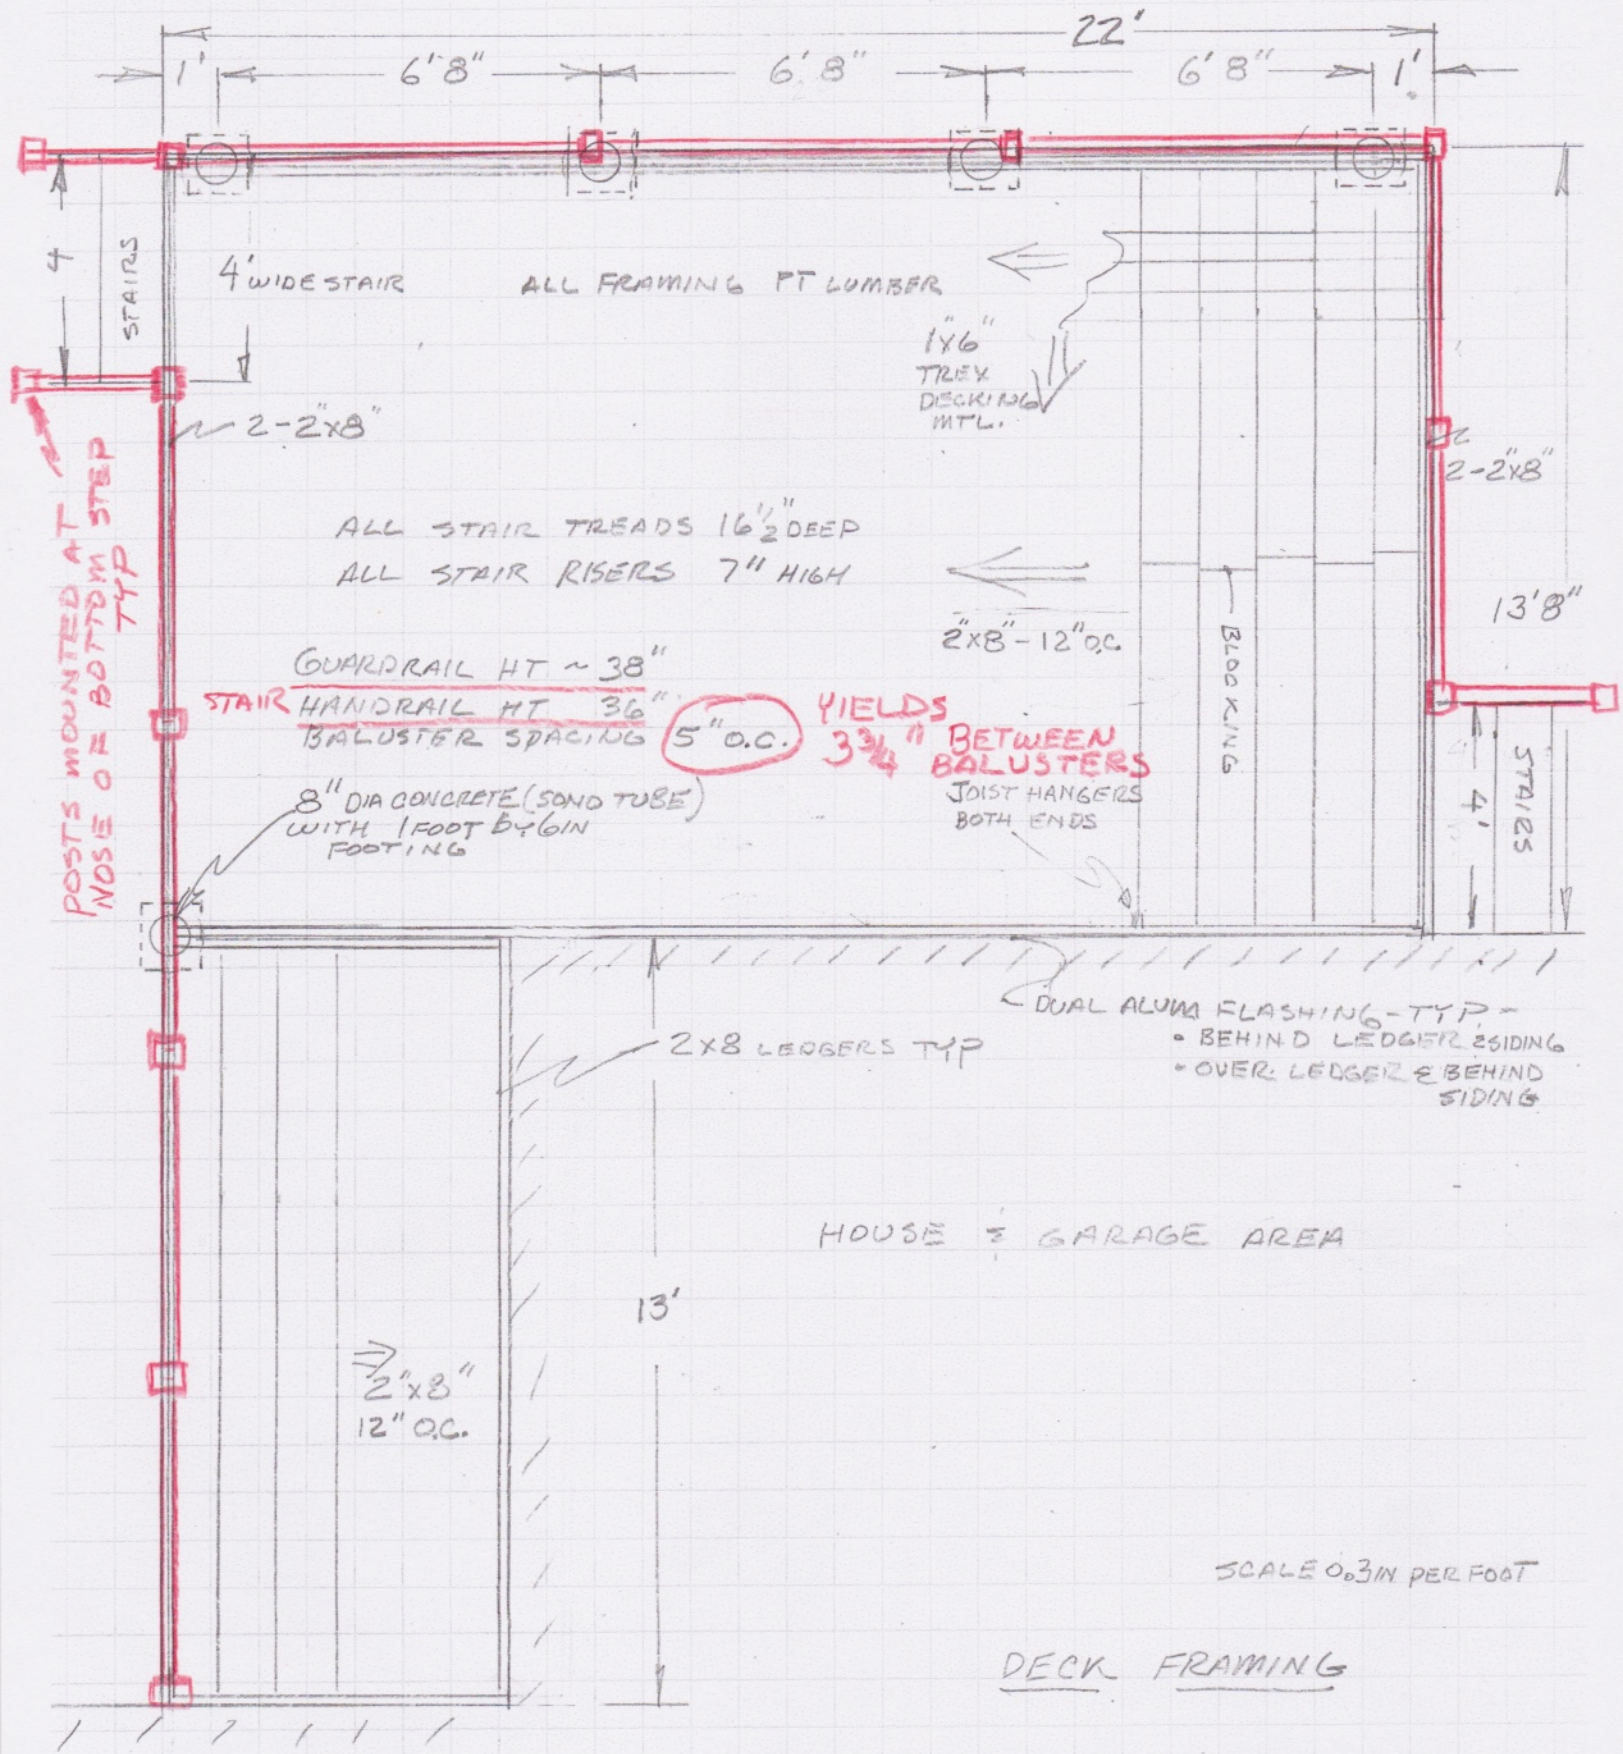 22'
1'
6'8"
6'8"
6'8"
1'
4
STAIRS
4' WIDE STAIR
ALL FRAMING PT LUMBER
1"X6"
TREX
DECKING
MTL.
2-2"X8"
2-2"X8"
POSTS MOUNTED AT
NOSE OF BOTTOM STEP
TYP
ALL STAIR TREADS 16½" DEEP
ALL STAIR RISERS 7" HIGH
2"X8"-12" O.C.
BLOCKING
13'8"
GUARDRAIL HT ~ 38"
STAIR HANDRAIL HT 36"
BALUSTER SPACING 5" O.C.
YIELDS
3¾" BETWEEN
BALUSTERS
8" DIA CONCRETE (SONO TUBE)
WITH 1 FOOT BY 6IN
FOOTING
JOIST HANGERS
BOTH ENDS
4'
STAIRS
DUAL ALUM FLASHING-TYP-
• BEHIND LEDGER & SIDING
• OVER LEDGER & BEHIND
SIDING
2X8 LEDGERS TYP
HOUSE & GARAGE AREA
13'
2"X8"
12" O.C.
SCALE 0.3IN PER FOOT
DECK FRAMING